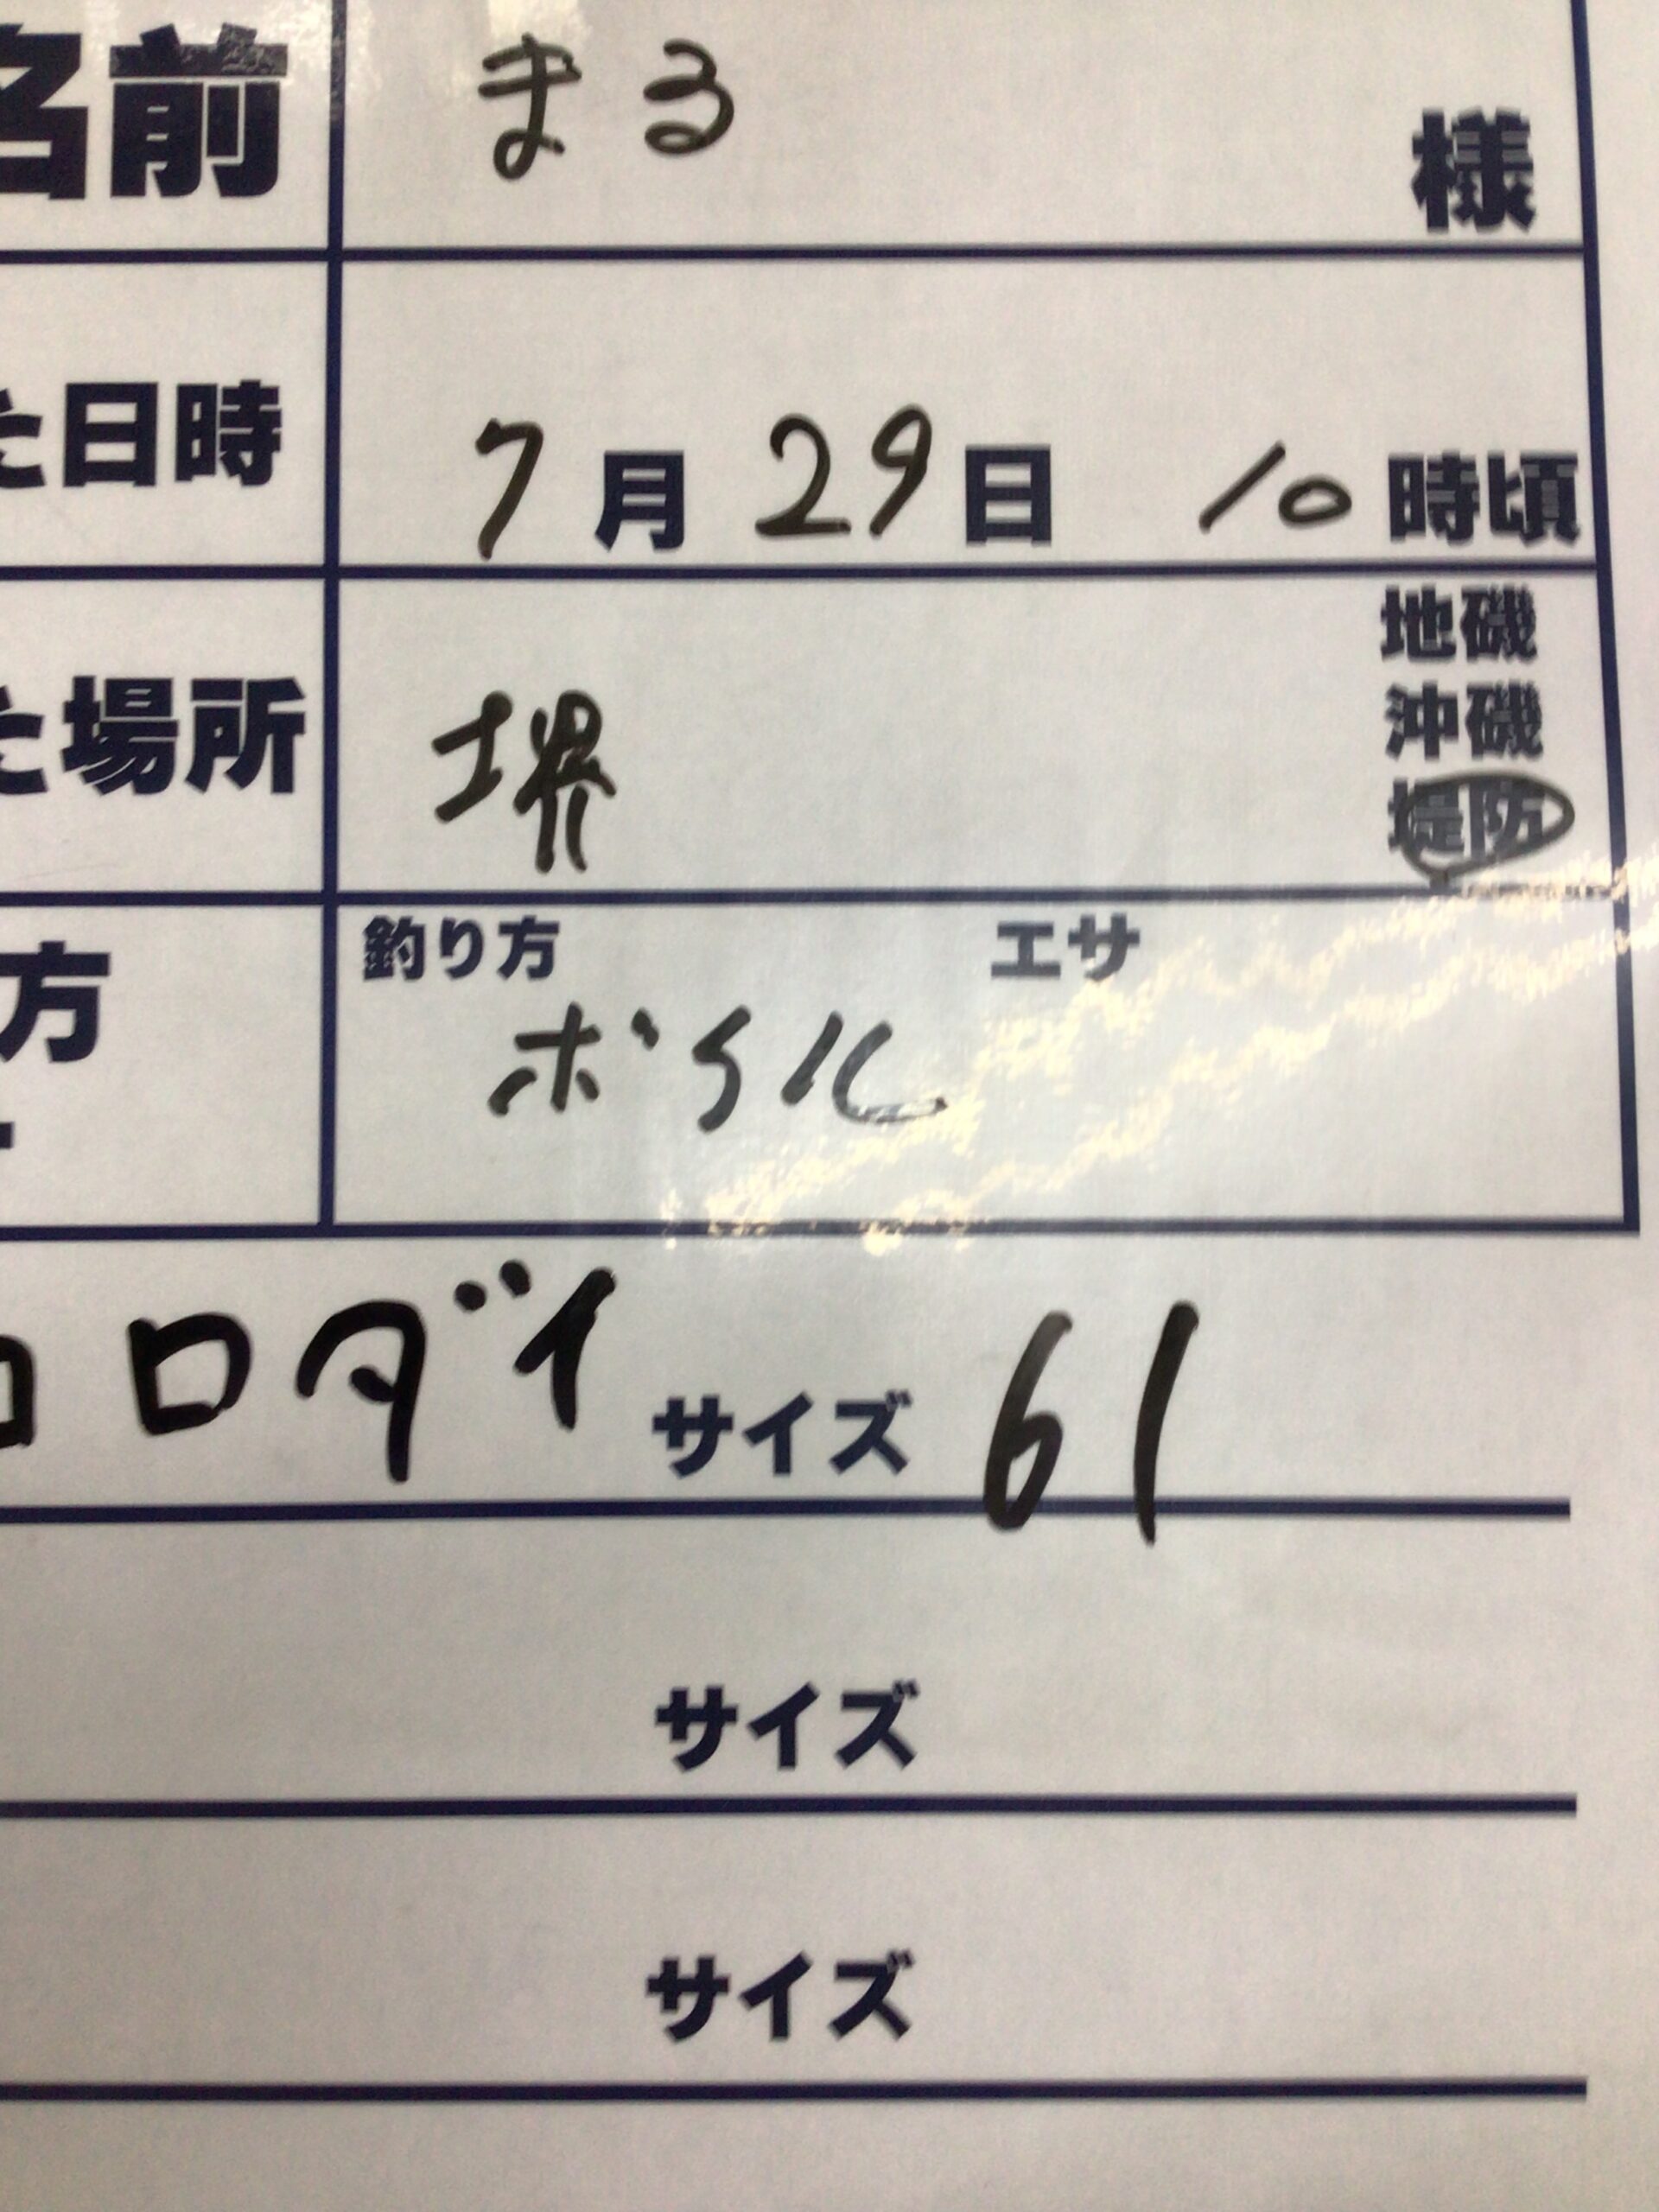 名前 まる 様
た日時 7月29日 10時頃
地磯
沖磯
た場所 堺 堤防
釣り方 エサ
方 ボイル
コロダイ サイズ 61
サイズ
サイズ